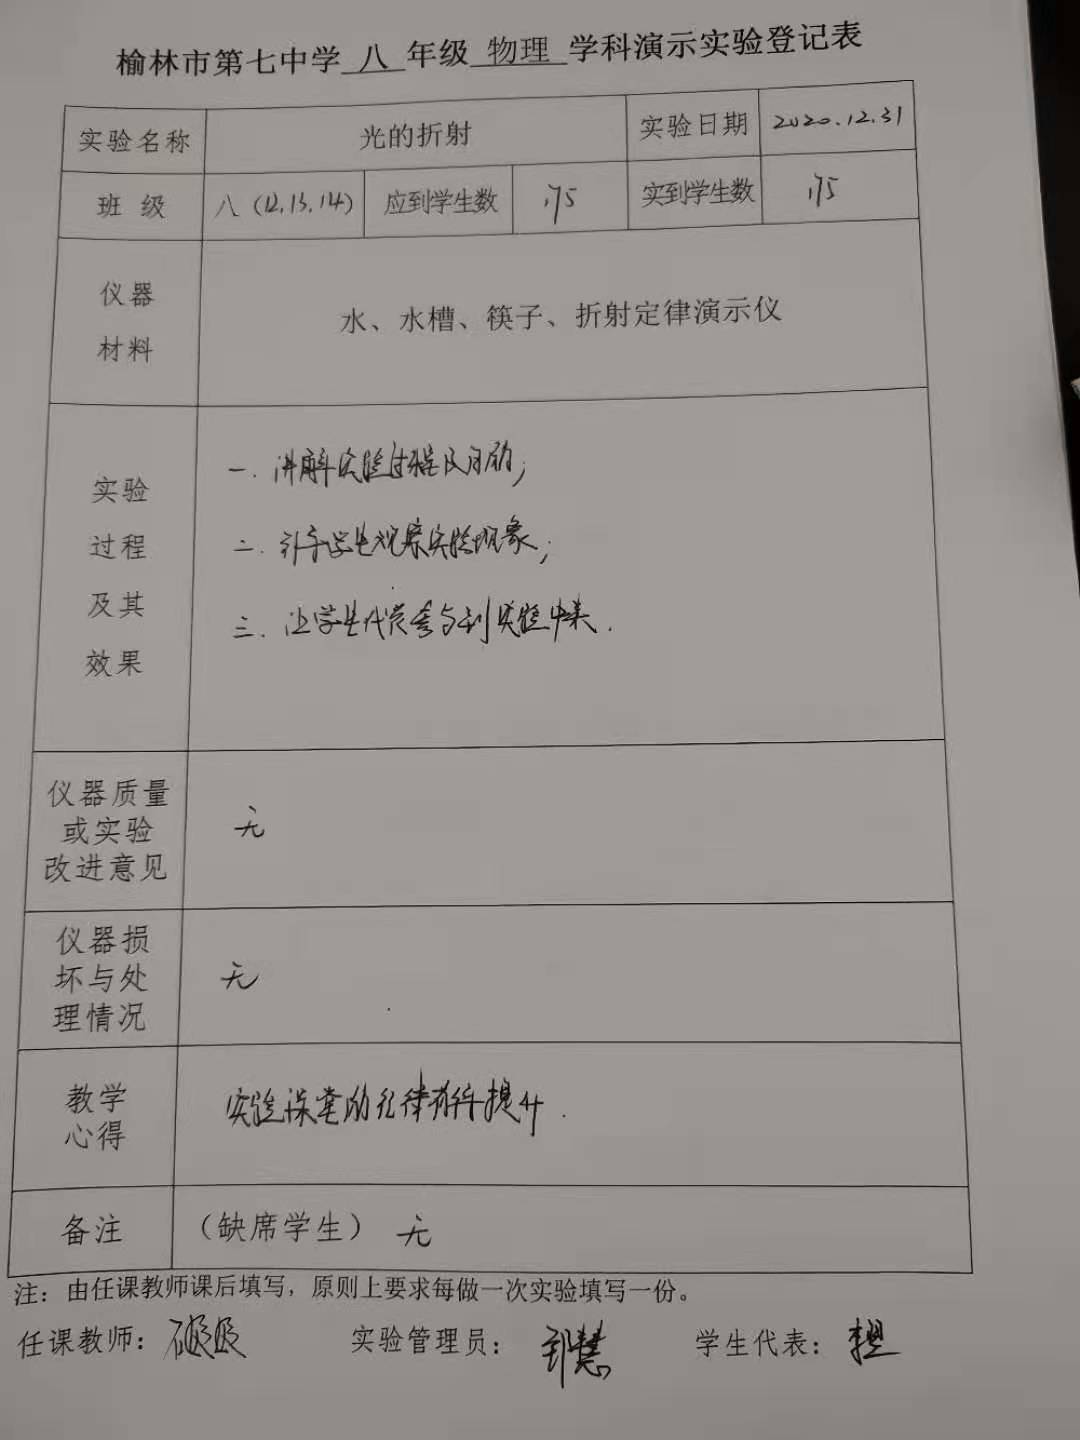 榆林市第七中学 八 年级 物理 学科演示实验登记表
实验名称 光的折射 实验日期 2020.12.31
班 级 八(12.13.14) 应到学生数 175 实到学生数 175
仪器
材料
水、水槽、筷子、折射定律演示仪
实验
过程
及其
效果
一.讲解实验过程及目的;
二.引导学生观察实验现象;
三.让学生代表参与到实验中来.
仪器质量
或实验
改进意见
无
仪器损
坏与处
理情况
无
教学
心得
实验课堂的纪律有待提升.
备注 (缺席学生) 无
注:由任课教师课后填写,原则上要求每做一次实验填写一份。
任课教师: 实验管理员: 学生代表: